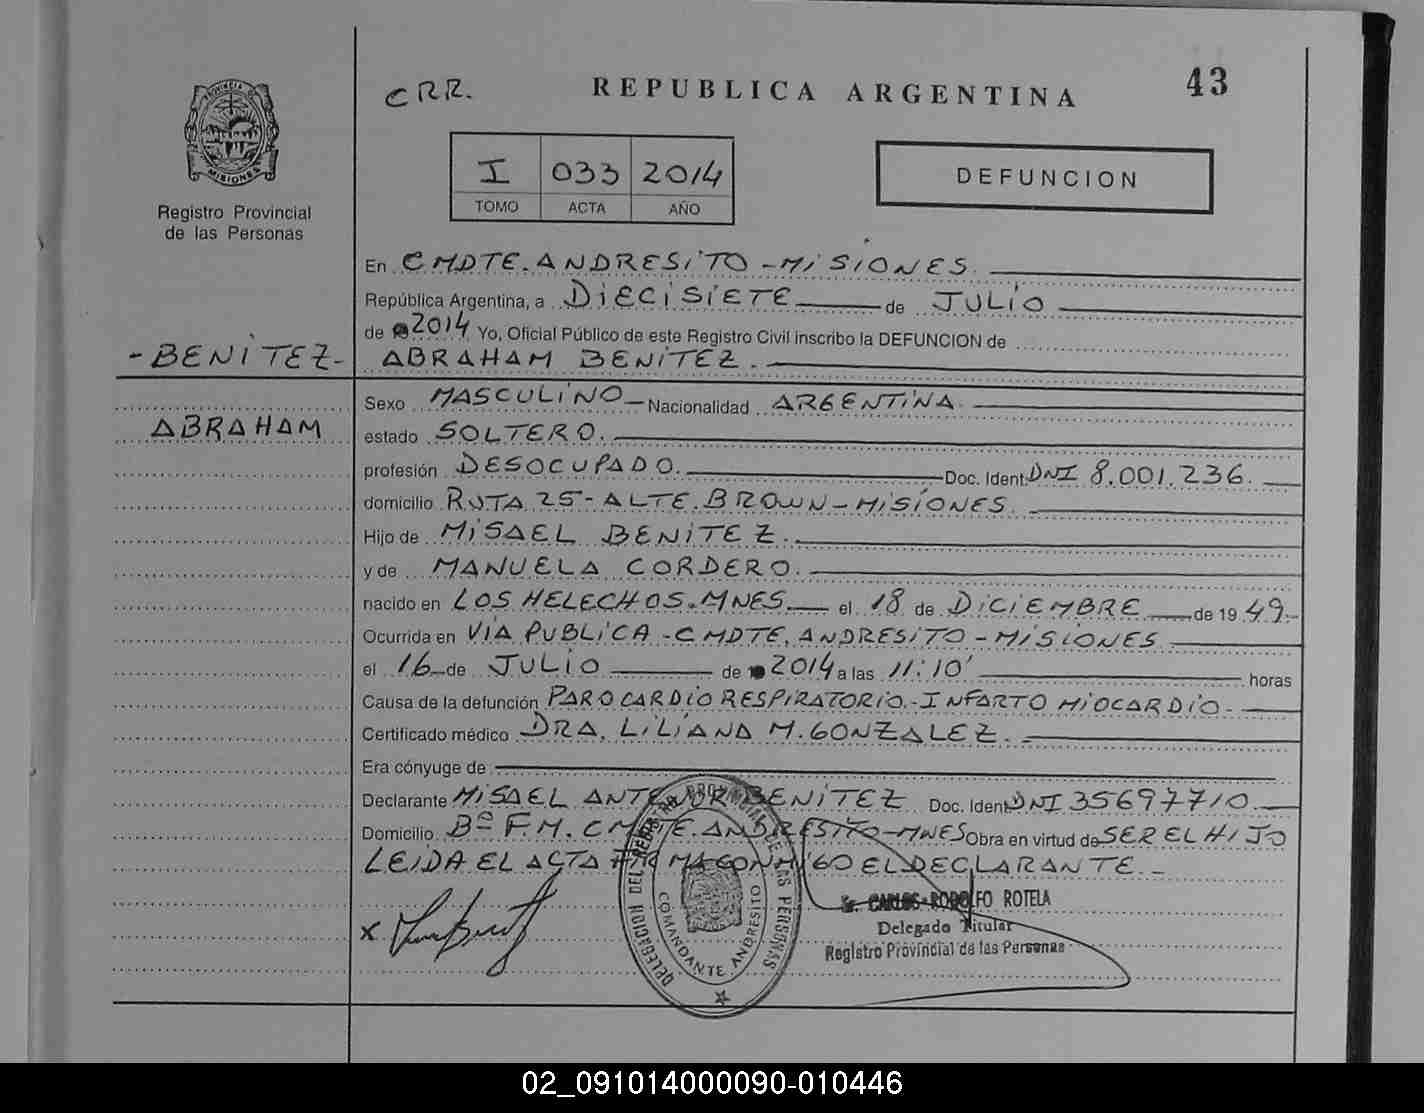 43
CRR. REPUBLICA ARGENTINA
PROVINCIA DE
MISIONES
I 033 2014
TOMO ACTA AÑO
DEFUNCION
Registro Provincial
de las Personas
En CMDTE. ANDRESITO - MISIONES.
República Argentina, a DIECISIETE de JULIO
de 2014 Yo, Oficial Público de este Registro Civil inscribo la DEFUNCION de
- BENITEZ - ABRAHAM BENITEZ.
Sexo MASCULINO - Nacionalidad ARGENTINA
ABRAHAM estado SOLTERO.
profesión DESOCUPADO. Doc. Ident. DNI 8.001.236.
domicilio RUTA 25 - ALTE. BROWN - MISIONES
Hijo de MISAEL BENITEZ.
y de MANUELA CORDERO.
nacido en LOS HELECHOS. MNES el 18 de DICIEMBRE de 19 49.-
Ocurrida en VIA PUBLICA - CMDTE. ANDRESITO - MISIONES
el 16 de JULIO de 2014 a las 11:10' horas
Causa de la defunción PARO CARDIO RESPIRATORIO.- INFARTO MIOCARDIO.-
Certificado médico DRA. LILIANA M. GONZALEZ.-
Era cónyuge de
Declarante MISAEL ANTENOR BENITEZ Doc. Ident. DNI 35697710
Domicilio Bº F.M. CMDTE. ANDRESITO - MNES Obra en virtud de SER EL HIJO
LEIDA EL ACTA FIRMA CONMIGO EL DECLARANTE.-
X
DELEGACION DEL REGISTRO PROVINCIAL DE LAS PERSONAS
COMANDANTE ANDRESITO
Sr. CARLOS RODOLFO ROTELA
Delegado Titular
Registro Provincial de las Personas
02_091014000090-010446